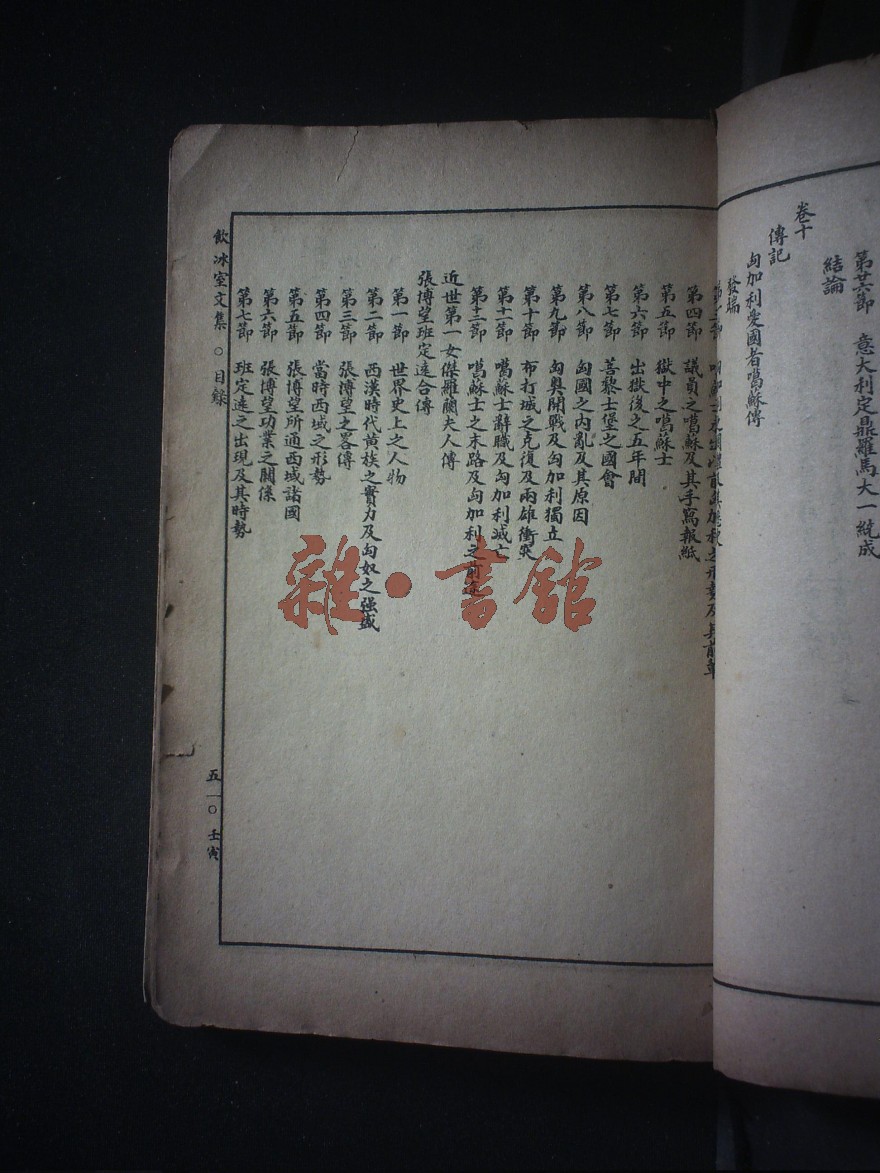 第廿六節 意大利定鼎羅馬大一統成
結論
卷十
傳記
匈加利愛國者噶蘇傳
發端
第四節 議員之噶蘇及其手寫報紙
第五節 獄中之噶蘇士
第六節 出獄後之五年間
第七節 菩黎士堡之國會
第八節 匈國之內亂及其原因
第九節 匈奧開戰及匈加利獨立
第十節 布打城之克復及兩雄衝突
第十一節 噶蘇士辭職及匈加利滅亡
第十二節 噶蘇士之末路及匈加利之前途
近世第一女傑羅蘭夫人傳
張博望班定遠合傳
第一節 世界史上之人物
第二節 西漢時代黃族之實力及匈奴之强盛
第三節 張博望之畧傳
第四節 當時西域之形勢
第五節 張博望所通西域諸國
第六節 張博望功業之關係
第七節 班定遠之出現及其時勢
飲冰室文集 ○ 目錄
五 一○ 壬寅
雜·書館